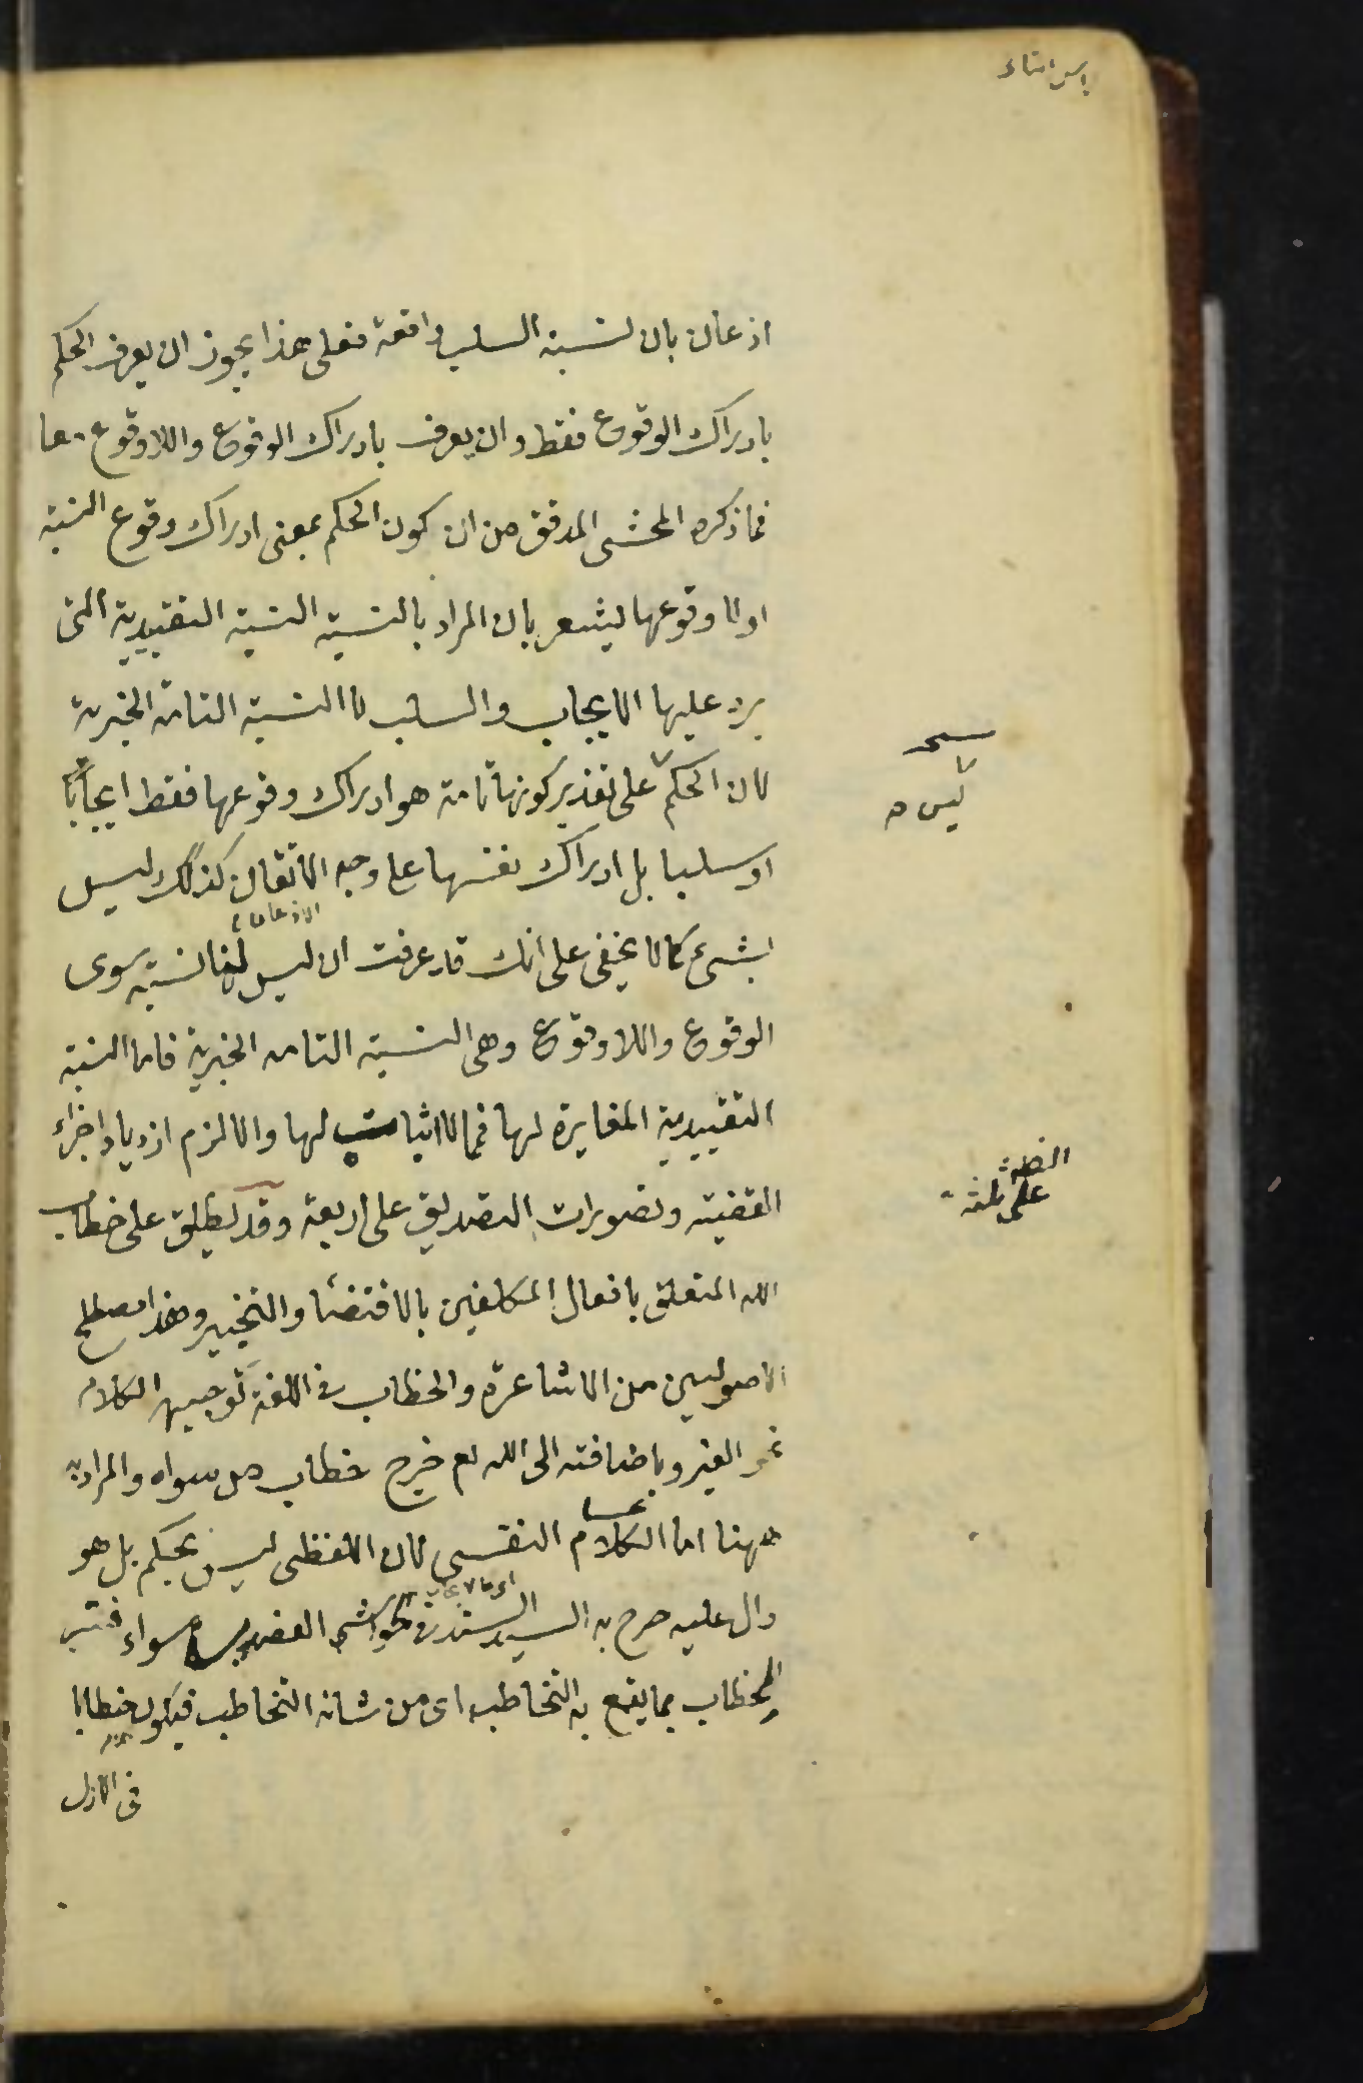 اذعان بان نسبة السلب واقعة فعلى هذا يجوز ان يعرف الحكم
بادراك الوقوع فقط وان يعرف بادراك الوقوع واللاوقوع معا
فما ذكره المحشى المدقق من ان كون الحكم بمعنى ادراك وقوع النسبة
اولا وقوعها يشعر بان المراد بالنسبة النسبة التقييدية التى
يرد عليها الايجاب والسلب لا النسبة التامة الخبرية
لان الحكم على تقدير كونها تامة هو ادراك وقوعها فقط ايجابا
او سلبا بل ادراك نفسها على وجه الاتقان كذلك ليس
الاذعان
بشئ كما لا يخفى على انك قد عرفت ان ليس لنا نسبة سوى
الوقوع واللاوقوع وهى النسبة التامه الخبرية فاما النسبة
التقييدية المغايرة لها فمما لا اثبات لها والا لزم ازدياد اجزاء
القضية وتصورات التصديق على اربعة وقد يطلق على خطاب
الله المتعلق بافعال المكلفين بالاقتضاء والتخيير وهذا مصطلح
الاصوليين من الاشاعرة والخطاب فى اللغة توجيه الكلام
نحو الغير وباضافته الى الله تع خرج خطاب من سواه والمراد به
ههنا اما الكلام النفسى لان اللفظى ليس بحكم بل هو
دال عليه صرح به السيد السند فى حواشى العضد سواء فسر
الخطاب بما يقع به التخاطب اى من شانه التخاطب فيكون خطابا
فى الازل
ليس صح
على ثلثة